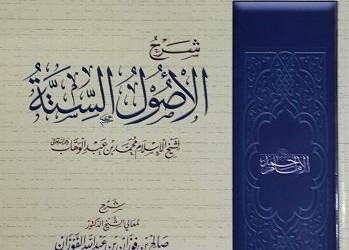 شرح
الأصول الستة
لشيخ الإسلام محمد بن عبد الوهاب
شرح
لمعالي الشيخ الدكتور
صالح بن فوزان بن عبد الله الفوزان